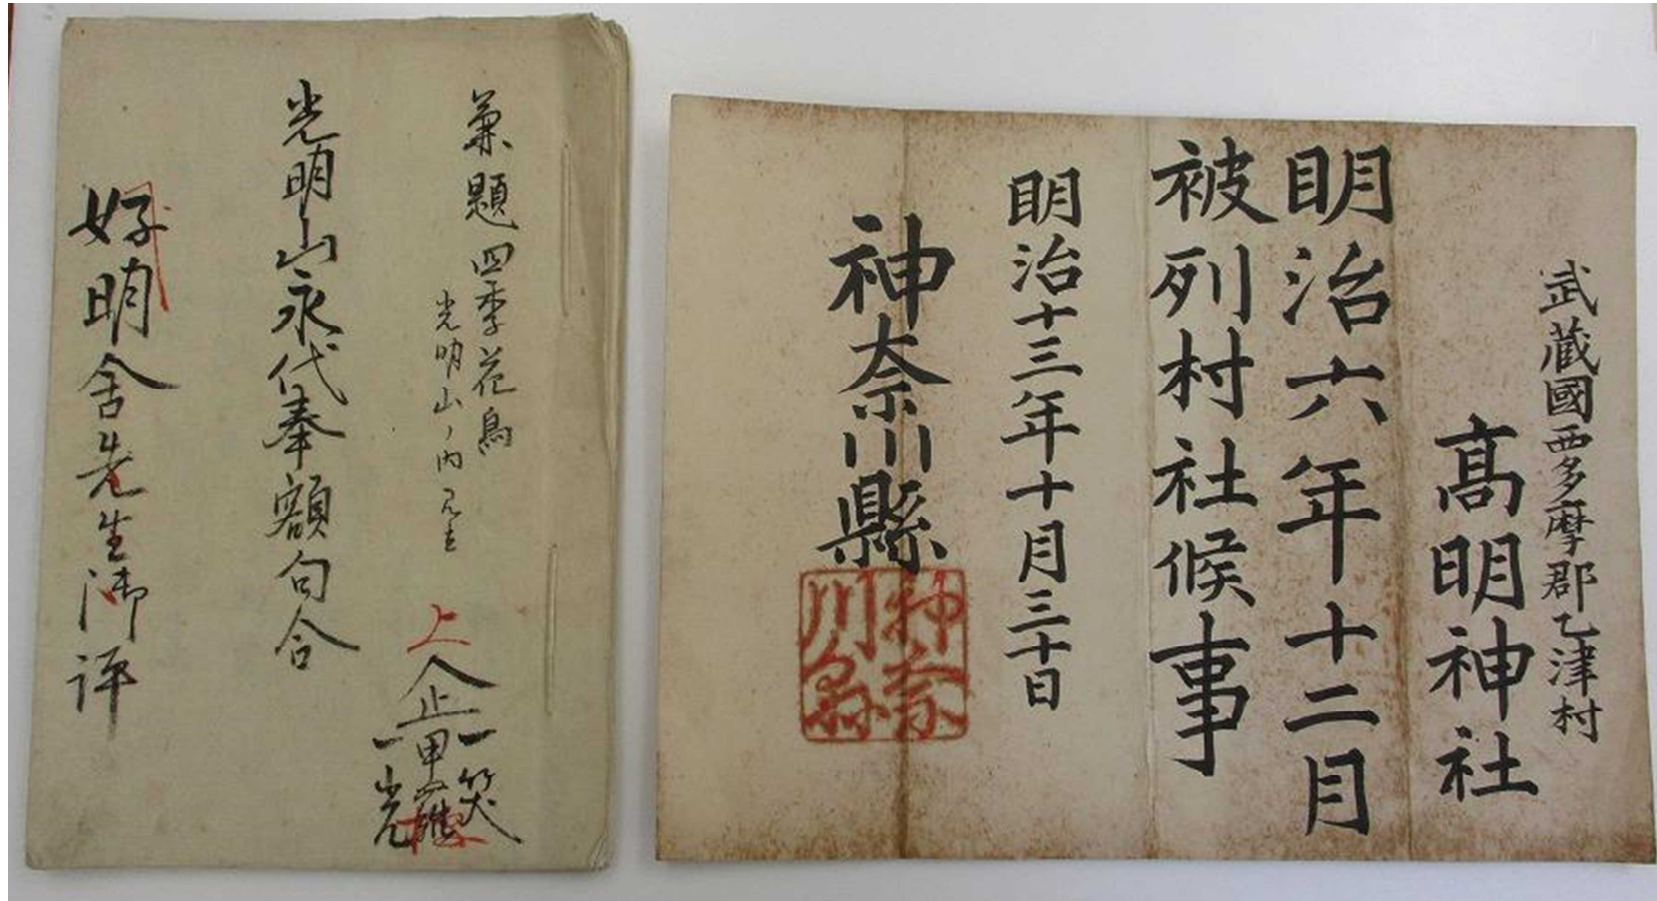 武蔵國西多摩郡乙津村
髙明神社
明治六年十二月
被列村社候事
明治十三年十月三十日
神奈川縣
神奈
川縣
兼題四季花鳥
光明山ノ内
上
一笑
一光
光明山永代奉額句合
好明舍先生御評